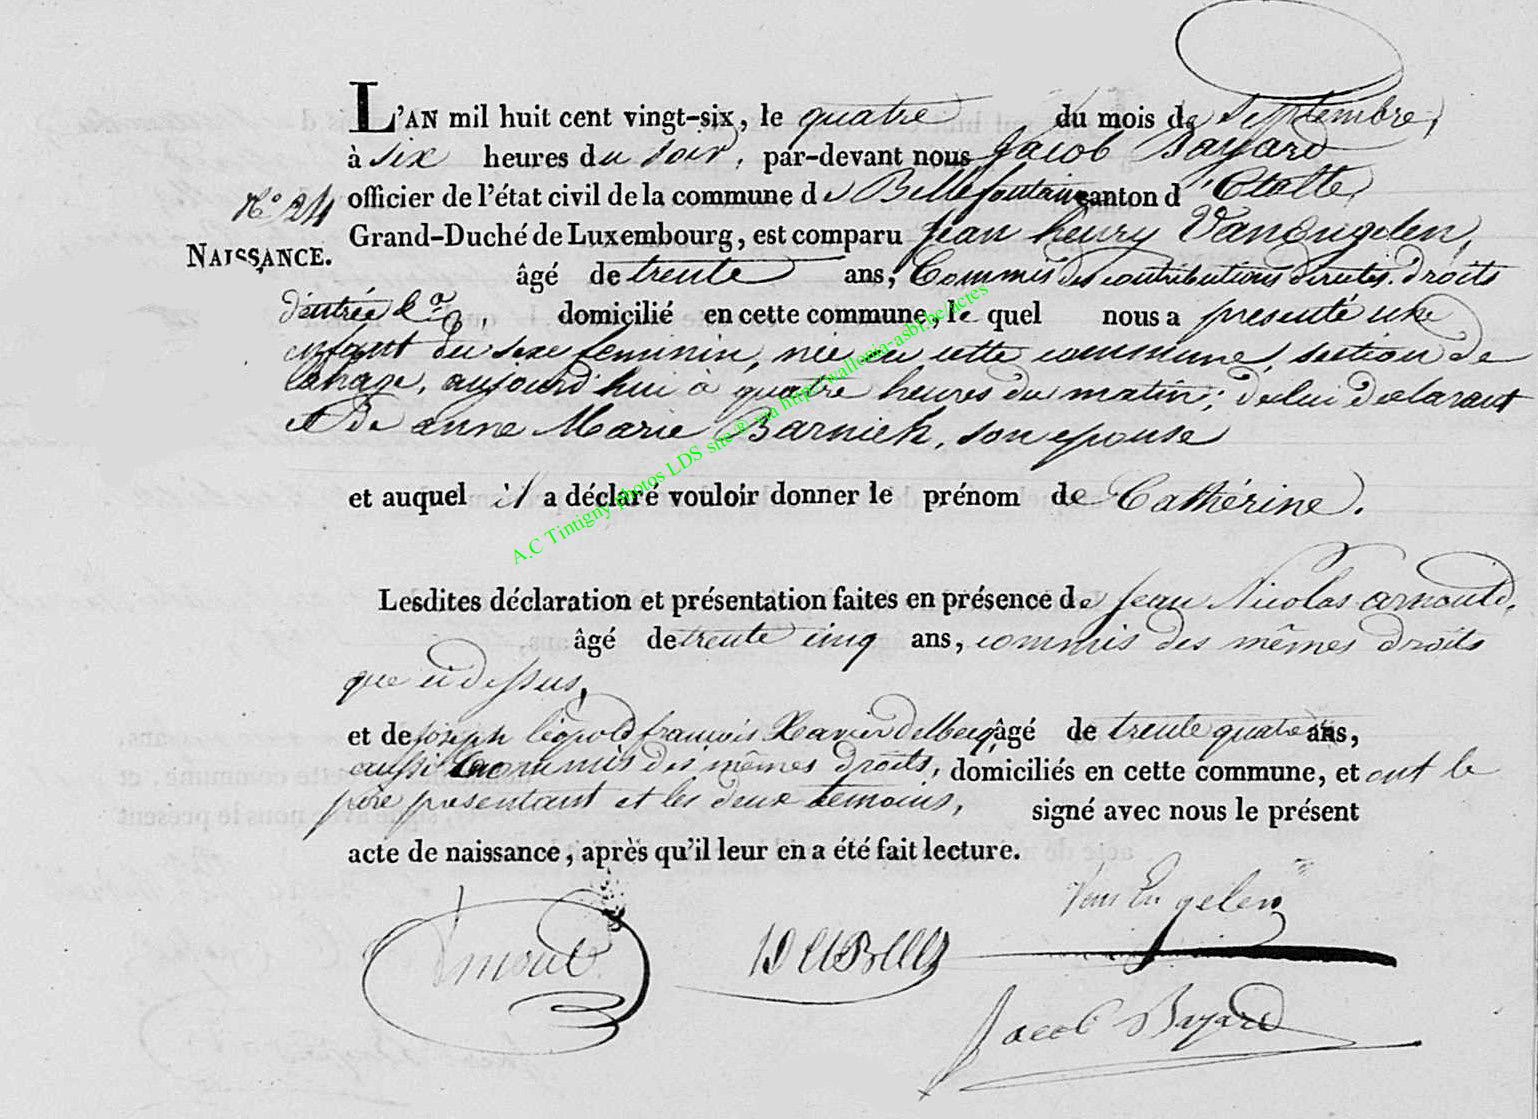 L'AN mil huit cent vingt-six, le quatre du mois de Septembre,
à Six heures du Soir, par-devant nous Jacob Bayard
officier de l'état civil de la commune de Bellefontaine canton d'Etalle,
N.° 24
NAISSANCE.
Grand-Duché de Luxembourg, est comparu Jean henry Vanengelen,
âgé de trente ans, Commis des contributions directes. droits
d'entrée &.a, domicilié en cette commune, le quel nous a presenté une
enfant du sexe feminin, née en cette commune, section de
Lahage, aujourd'hui à quatre heures du matin; de lui déclarant
et de anne Marie Barnich, son epouse
et auquel il a déclaré vouloir donner le prénom de Cathérine.
Lesdites déclaration et présentation faites en présence de Jean Nicolas arnould,
âgé de trente cinq ans, commis des mêmes droits
que ci dessus,
et de joseph léopold françois Xavier delbecq, âgé de trente quatre ans,
aussi Commis des mêmes droits, domiciliés en cette commune, et ont le
père présentant et les deux temoins, signé avec nous le présent
acte de naissance, après qu'il leur en a été fait lecture.
Van Engelen
Arnould
Jacob Bayard
A.C Tintigny Photos LDS site @ via http://wallonia-asbl.be/actes